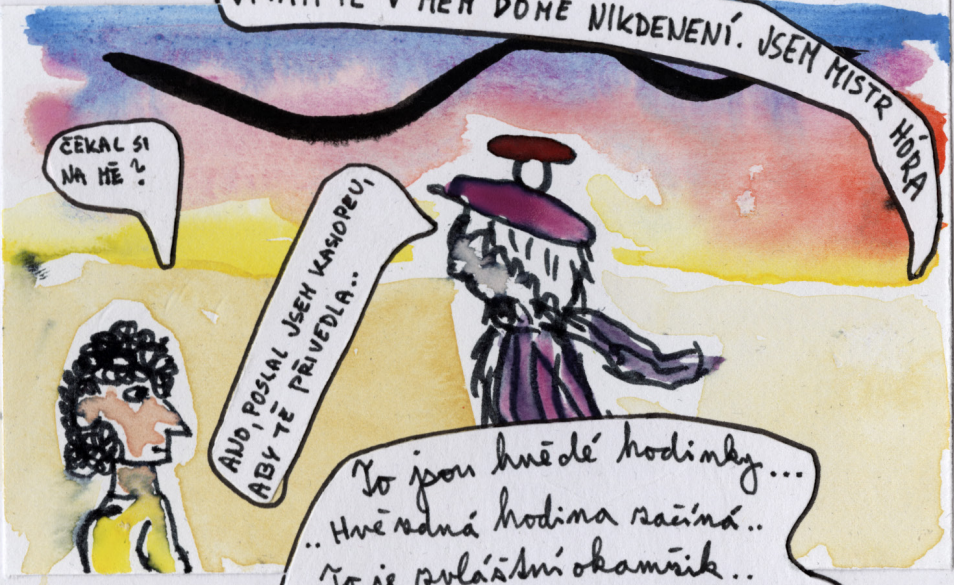 V MÉM DOMĚ NIKDENENÍ. JSEM MISTR HÓRA
ČEKAL SI
NA MĚ?
ANO, POSLAL JSEM KASIOPEU,
ABY TĚ PŘIVEDLA..
To jsou hnědé hodinky...
..Hvězdná hodina začíná..
To je zvláštní okamžik..